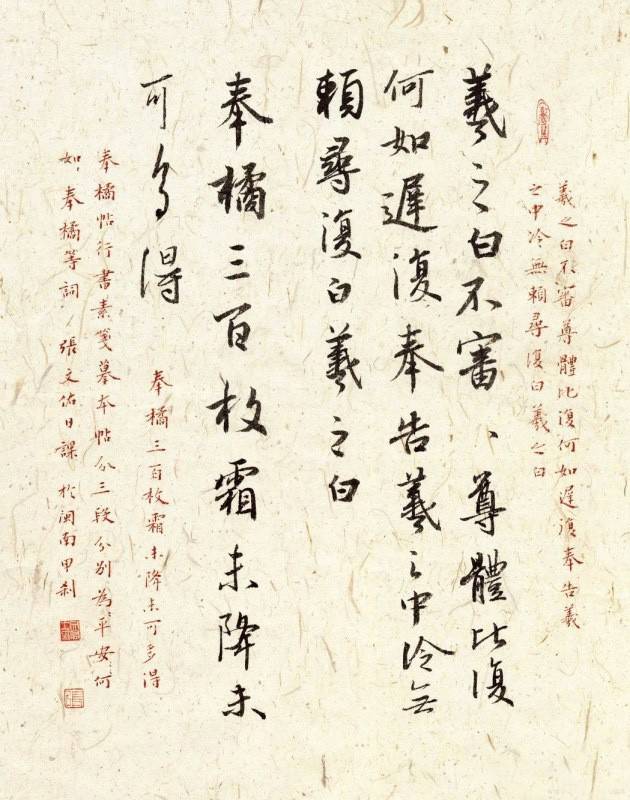 羲之白不審尊體比復何如遲復奉告羲
之中冷無賴尋復白羲之白
羲之白不審、尊體比復
何如遲復奉告羲之中冷無
賴尋復白羲之白
奉橘三百枚霜未降未
可多得
奉橘三百枚霜未降未可多得
奉橘帖行書素箋摹本帖分三段分別為平安何
如、奉橘等詞 張文佑日課 於閩南甲刹